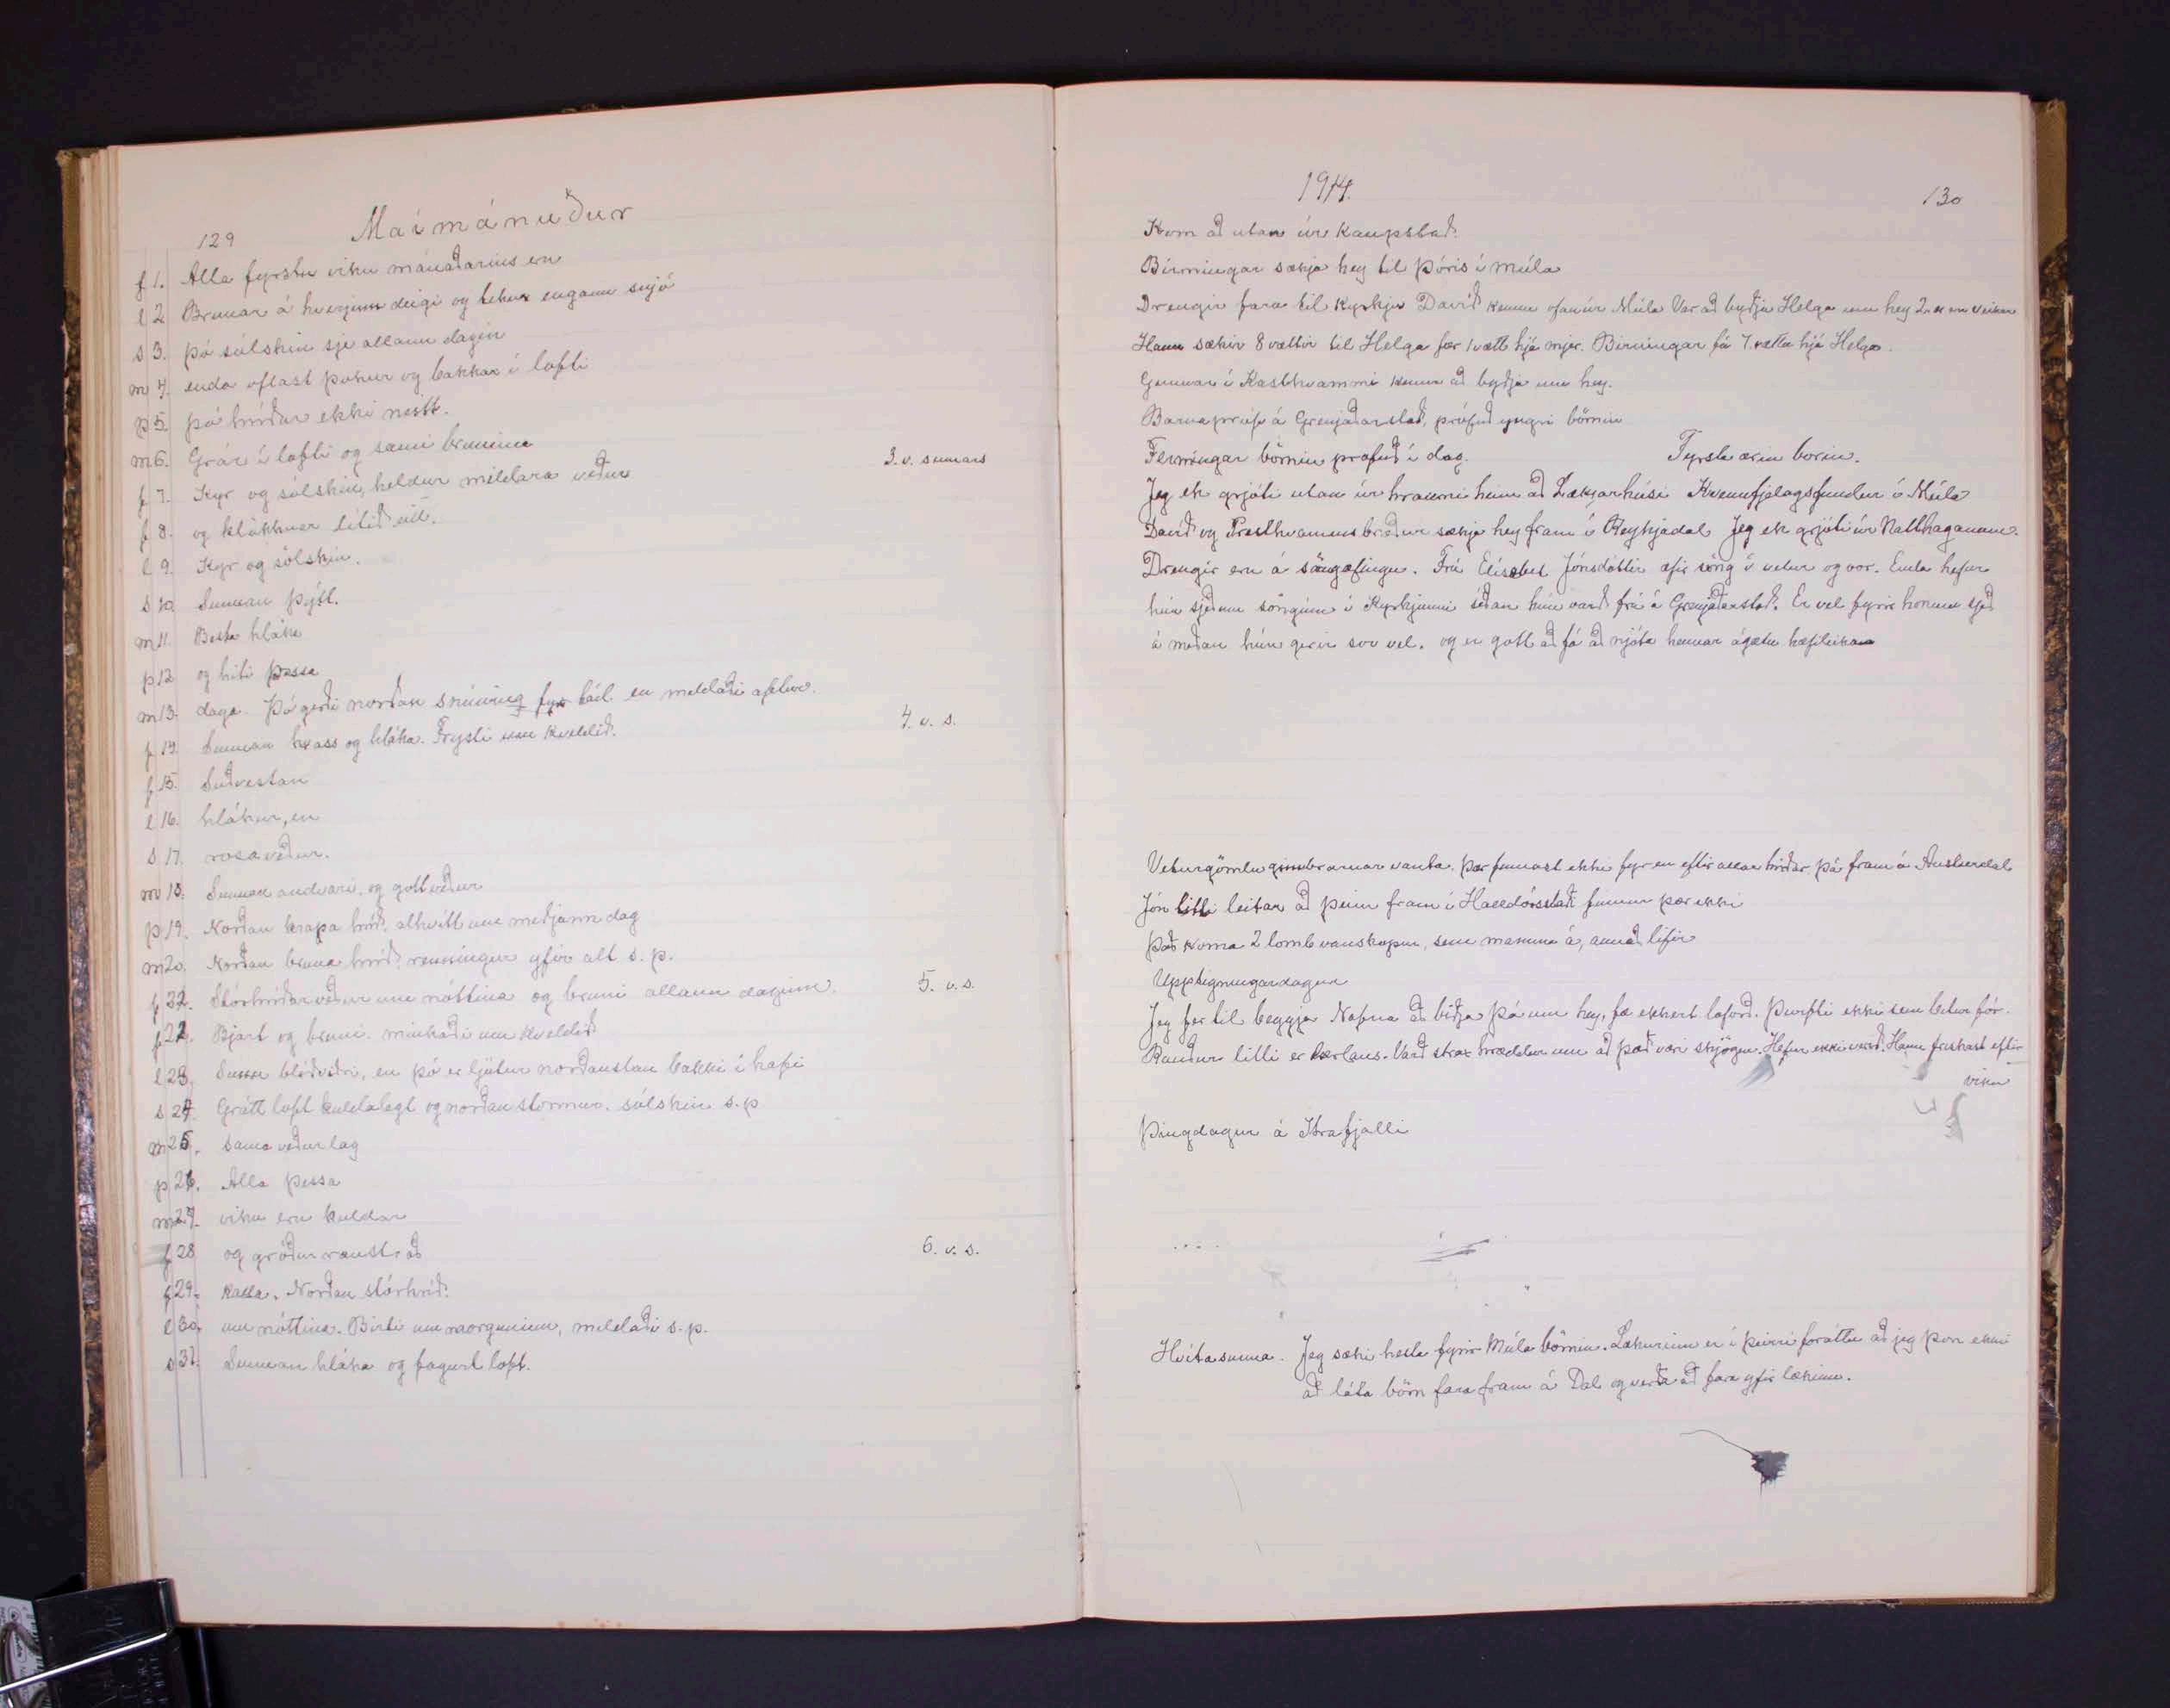 129 Maímánuður
f 1. Alla fyrstu viku mánaðarins eru
l 2 Brunar á hverjum deigi og tekur engann snjó
s 3. þó sólskin sje allann dagin
m 4. enda oftast þokur og bakkar í lofti
þ 5. þó hríðar ekki neitt.
m 6. Grár í lofti og sami bruninn 3. v. sumars
f 7. Kyr og sólskin, heldur mildara veður
f 8. og klökknar lítið eitt.
l 9. Kyr og sólskin.
s 10 Sunnan þýtt.
m 11. Besta hláka
þ 12 og hiti þessa
m 13. daga. Þó gerði norðan snúning fyr en mildaði aftur.
f 14. Sunnan hvass og hláka. Frysti um kveldið. 4. v. s.
f 15. Suðvestan
l 16. hlákur, en
s 17. rosaveður.
m 18. Sunnan andvari, og gott veður
þ 19. Norðan krapa hríð, alhvítt um miðjann dag
m 20. Norðan bruna hríð, renningur yfir alt s. p.
f 21. Stórhríðarveður um nóttina og bruni allann daginn. 5. v. s.
f 22. Bjart og bruni. minkaði um kveldið
l 23. Sunnan blíðviðri, en þó er ljótur norðaustan bakki í hafi
s 24. Grátt loft kuldalegt og norðan stormur. sólskin s. p
m 25. sama veðurlag
þ 26. Alla þessa
m 27. viku eru kuldar
f 28 og gróður 6. v. s.
f 29. kalla. Norðan stórhríð.
l 30. um nóttina. Birti um morguninn, mildaði s. p.
s 31. Sunnan hláka og fagurt loft.
1914. 130
Kom að utan úr Kaupstað.
Birningar sækja hey til Þóris í múla
Drengir fara til Kyrkju Davíð kemur ofan úr Múla Var að byðja Helga um hey
Hann sækir 8 vættir til Helga fær 1 vætt hjá mjer. Birningar fá 7. vætta hjá Helga.
Gunnar í Kasthvammi kemur að byðja um hey.
Barnapróf á Grenjaðarstað, prófuð yngri börnin
Fermingar börnin prófuð í dag. Fyrsta ærin borin.
Jeg ek grjóti utan úr hrauni heim að Lækjarhúsi Kvennfjelagsfundur í Múla
Davíð og Presthvamms bræður sækja hey fram í Reykjadal Jeg ek grjóti úr Natthaganum.
Drengir eru á söngæfingu. Frú Elísabet Jónsdóttir æfir söng í vetur og vor. Enda hefur
hún sjeð um sönginn í Kyrkjunni síðan hún varð frú á Grenjaðarstað. Er vel fyrir honum sjeð
á meðan hún gerir svo vel. og er gott að fá að njóta hennar ágætu hæfileika
Veturgömlu gimbrarnar vanta. Þær funnast ekki fyr en eftir allar hríðar þá fram á Austurdal
Jón litli leitar að þeim fram í Halldórsstaði finnur þær ekki
Það koma 2 lömb vansköpun, sem mamma á, annað lifir
Uppstigningardagur
Jeg fer til beggja Nafna að biðja þá um hey, fæ ekkert loforð. Þurfti ekki sem betur fór.
Rauður litli er kærlaus. Varð strax hræddur um að það væri skjögur. Hefur ekki verið. Hann friskast eftir
viku
Þingdagur á Ytrafjalli
Hvítasunna. Jeg sæki hesta fyrir Múla börnin. Lækurinn er í þeirri foráttu að jeg þori ekki
að láta börn fara fram á Dal og verða að fara yfir lækinn.